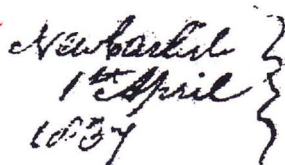 New Carlisle
1st April
1837